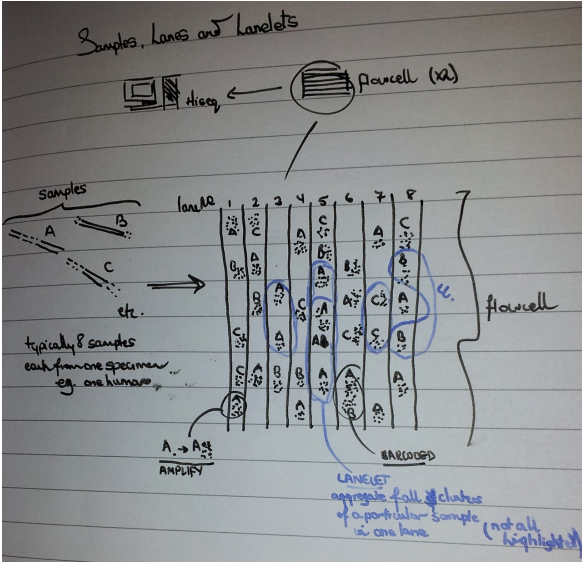 Samples, Lanes and Lanelets
flowcell (x2)
Hiseq
samples
A
B
C
etc.
typically 8 samples
each from one specimen
eg. one human
lane
1 2 3 4 5 6 7 8
A C A C A C
B
B A A B A
B A C A A C A
C A C AB C C B
C A B B A A A
A A B A
flowcell
A. → A
AMPLIFY
BARCODED
LANELET
aggregate of all clusters
of a particular sample
in one lane
(not all
highlighted)